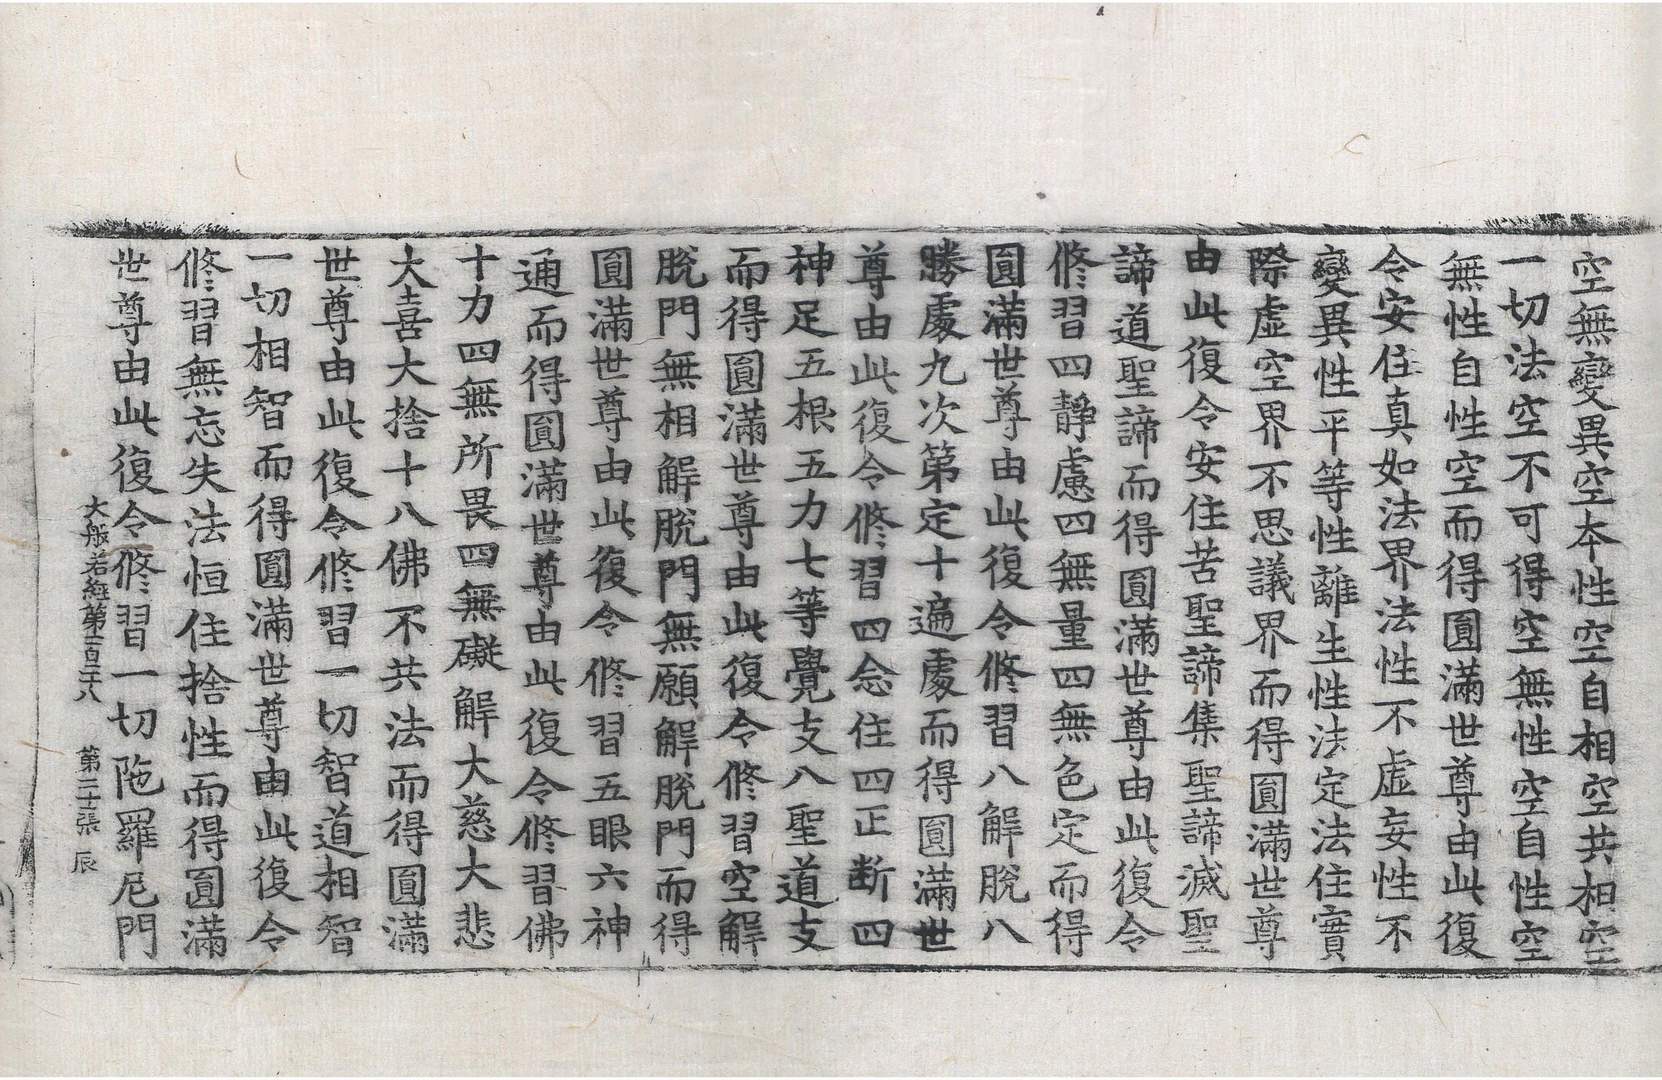 空無變異空本性空自相空共相空
一切法空不可得空無性空自性空
無性自性空而得圓滿世尊由此復
令安住真如法界法性不虛妄性不
變異性平等性離生性法定法住實
際虛空界不思議界而得圓滿世尊
由此復令安住苦聖諦集聖諦滅聖
諦道聖諦而得圓滿世尊由此復令
修習四靜慮四無量四無色定而得
圓滿世尊由此復令修習八解脫八
勝處九次第定十遍處而得圓滿世
尊由此復令修習四念住四正斷四
神足五根五力七等覺支八聖道支
而得圓滿世尊由此復令修習空解
脫門無相解脫門無願解脫門而得
圓滿世尊由此復令修習五眼六神
通而得圓滿世尊由此復令修習佛
十力四無所畏四無礙解大慈大悲
大喜大捨十八佛不共法而得圓滿
世尊由此復令修習一切智道相智
一切相智而得圓滿世尊由此復令
修習無忘失法恒住捨性而得圓滿
世尊由此復令修習一切陁羅尼門
大般若經第一百二十八 第張 辰